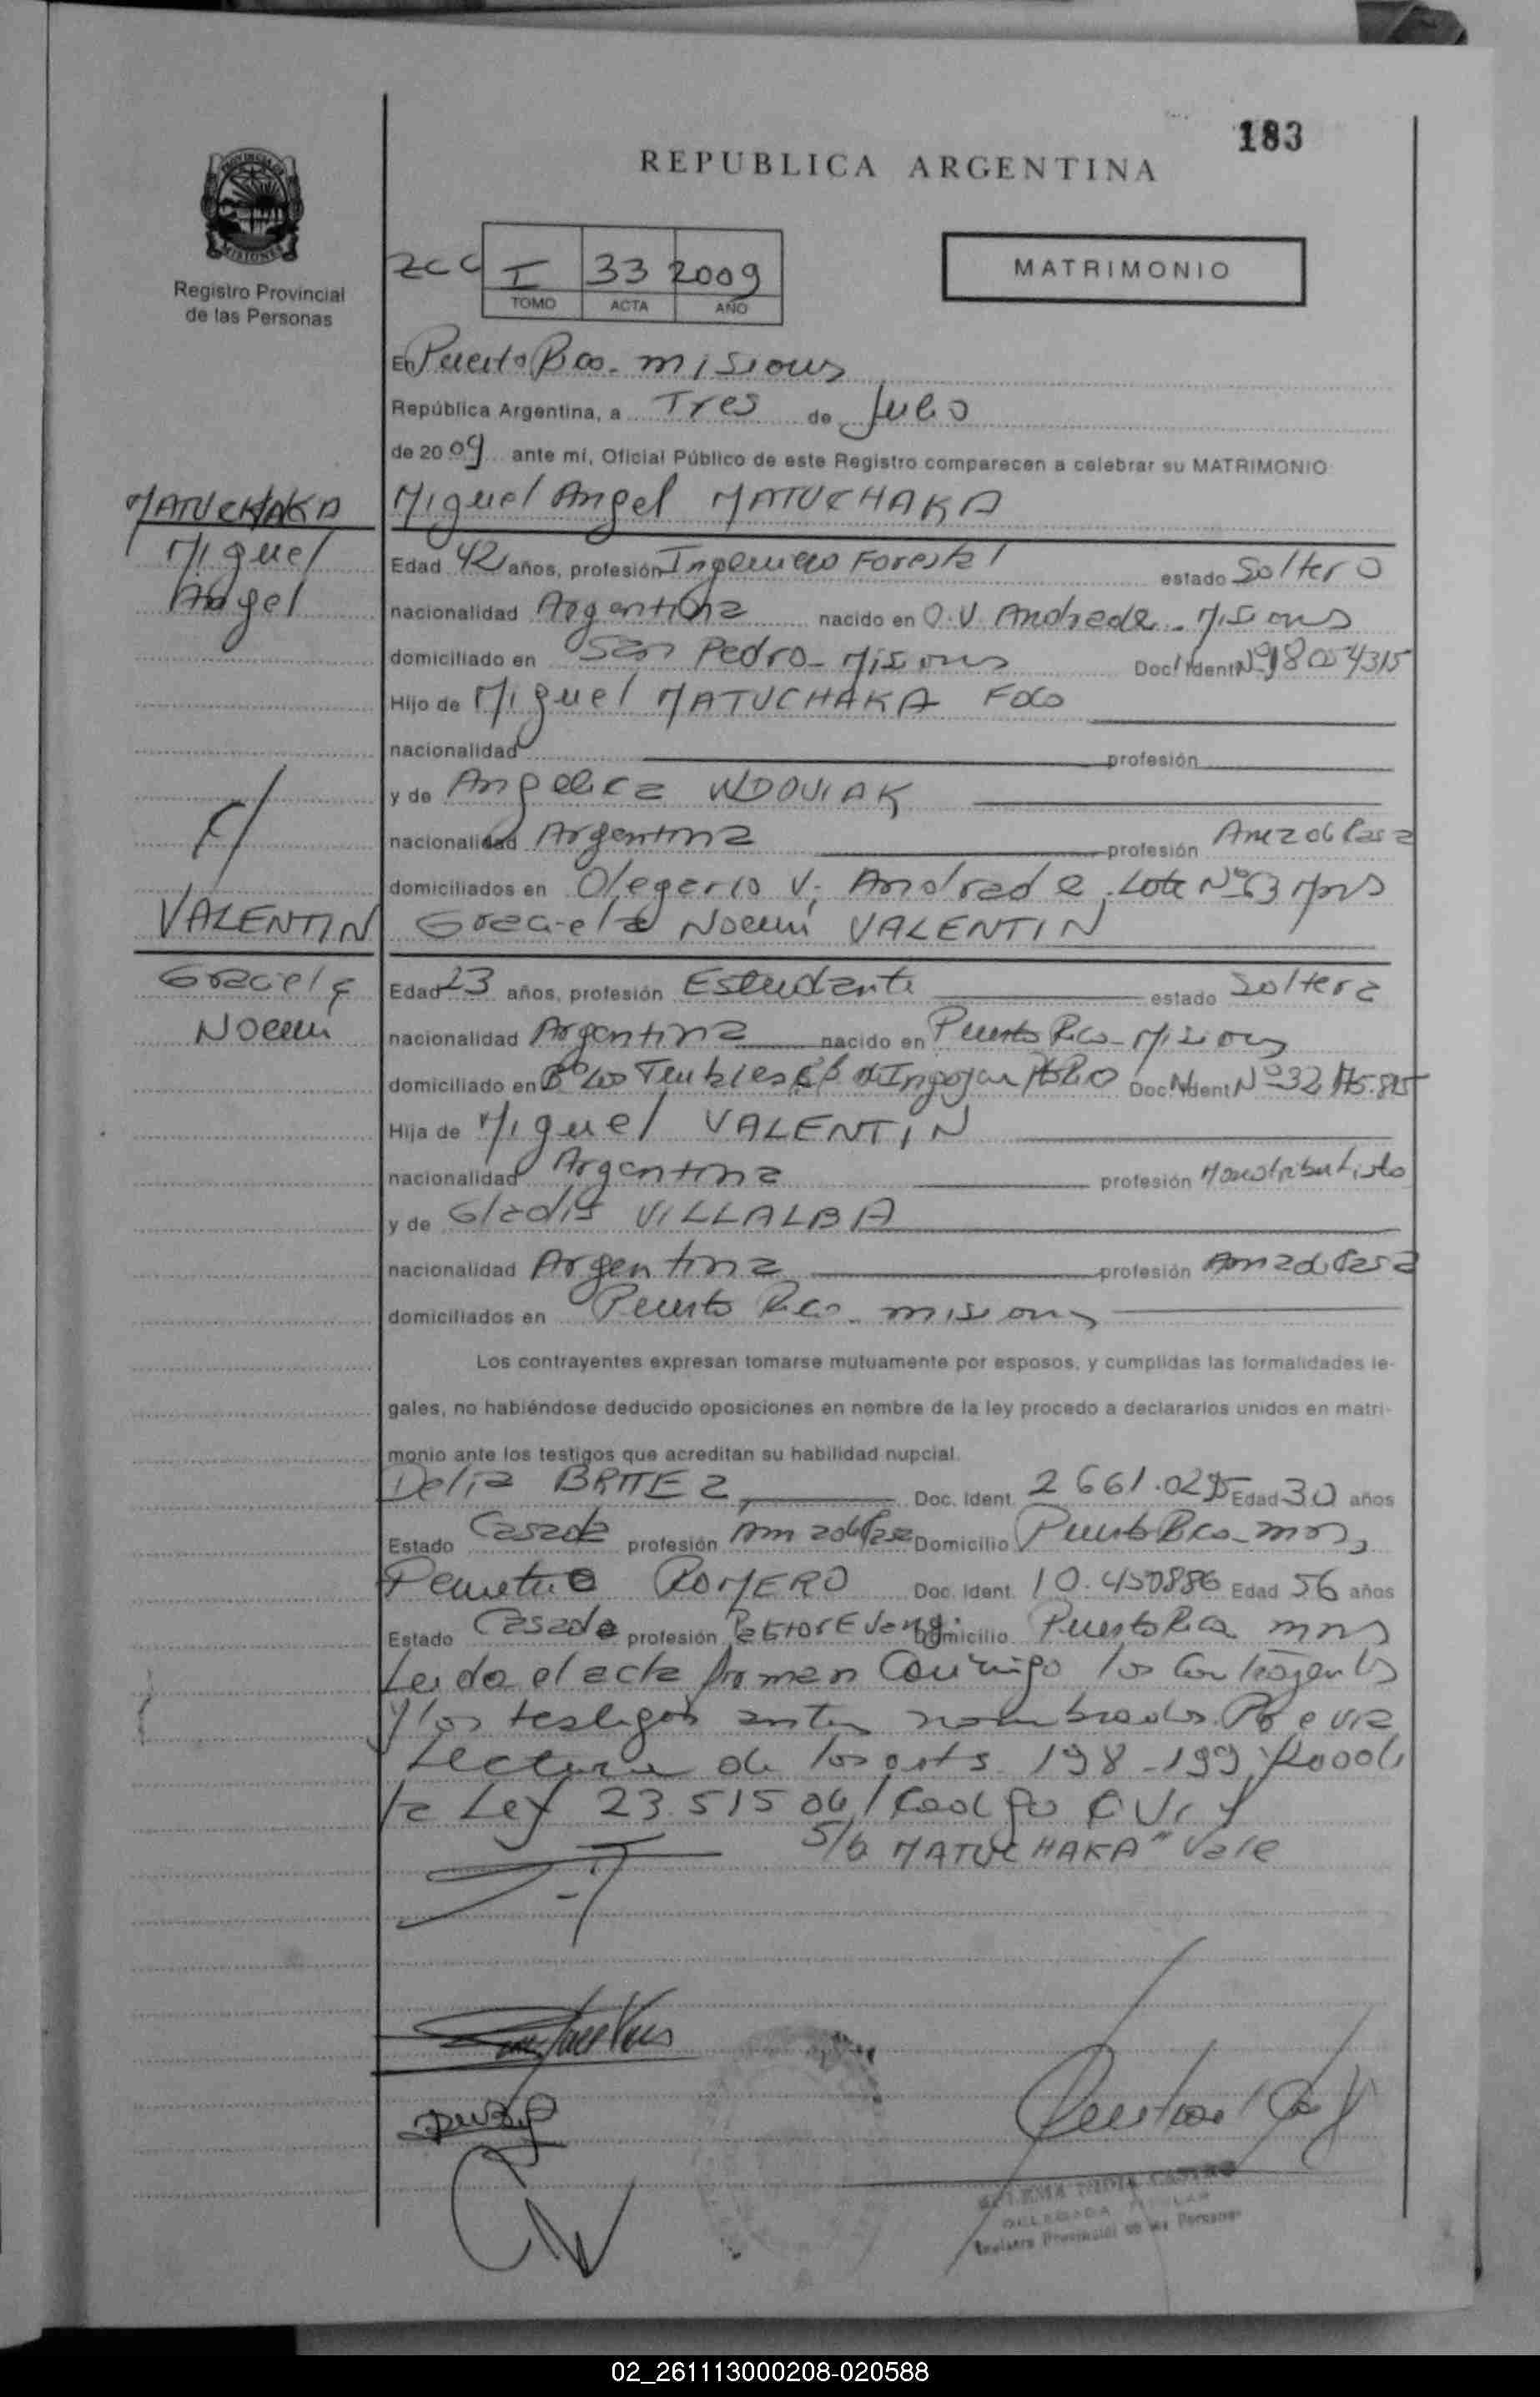 183
REPUBLICA ARGENTINA
I 33 2009
TOMO ACTA AÑO
MATRIMONIO
Registro Provincial
de las Personas
En Puerto Rico - Misiones
República Argentina, a Tres de Julio
de 2009 ante mí, Oficial Público de este Registro comparecen a celebrar su MATRIMONIO
MATUCHAKA
Miguel
Angel
Miguel Angel MATUCHAKA
Edad 42 años, profesión Ingeniero Forestal estado Soltero
nacionalidad Argentina nacido en O.V. Andrade - Misiones
domiciliado en San Pedro - Misiones Doc. Ident Nº 18054315
Hijo de Miguel MATUCHAKA Fdo
nacionalidad profesión
y de Angelica WDOVIAK
c/
nacionalidad Argentina profesión Ama de Casa
domiciliados en Olegario V. Andrade, Lote Nº 63 Mnes
VALENTIN
Graciela
Noemí
Graciela Noemí VALENTIN
Edad 23 años, profesión Estudiante estado Soltera
nacionalidad Argentina nacido en Puerto Rico - Misiones
domiciliado en Bº Los Teales Doc. Ident Nº 32
Hija de Miguel VALENTIN
nacionalidad Argentina profesión Monotributista
y de Gladis VILLALBA
nacionalidad Argentina profesión Ama de Casa
domiciliados en Puerto Rico - Misiones
Los contrayentes expresan tomarse mutuamente por esposos, y cumplidas las formalidades le-
gales, no habiéndose deducido oposiciones en nombre de la ley procedo a declararlos unidos en matri-
monio ante los testigos que acreditan su habilidad nupcial.
Delia BRITEZ Doc. Ident. Edad 30 años
Estado Casada profesión Ama de Casa Domicilio Puerto Rico - Mnes
Demetrio ROMERO Doc. Ident. 10.450886 Edad 56 años
Estado Casado profesión Pastor Evang. Domicilio Puerto Rico Mnes
Leída el acta firman conmigo los contrayentes
y los testigos antes nombrados. Previa
Lectura de los arts. 198-199 y 200 de
la Ley 23.515 del Codigo Civil
S/b "MATUCHAKA" Vale
Registro Provincial de las Personas
02_261113000208-020588